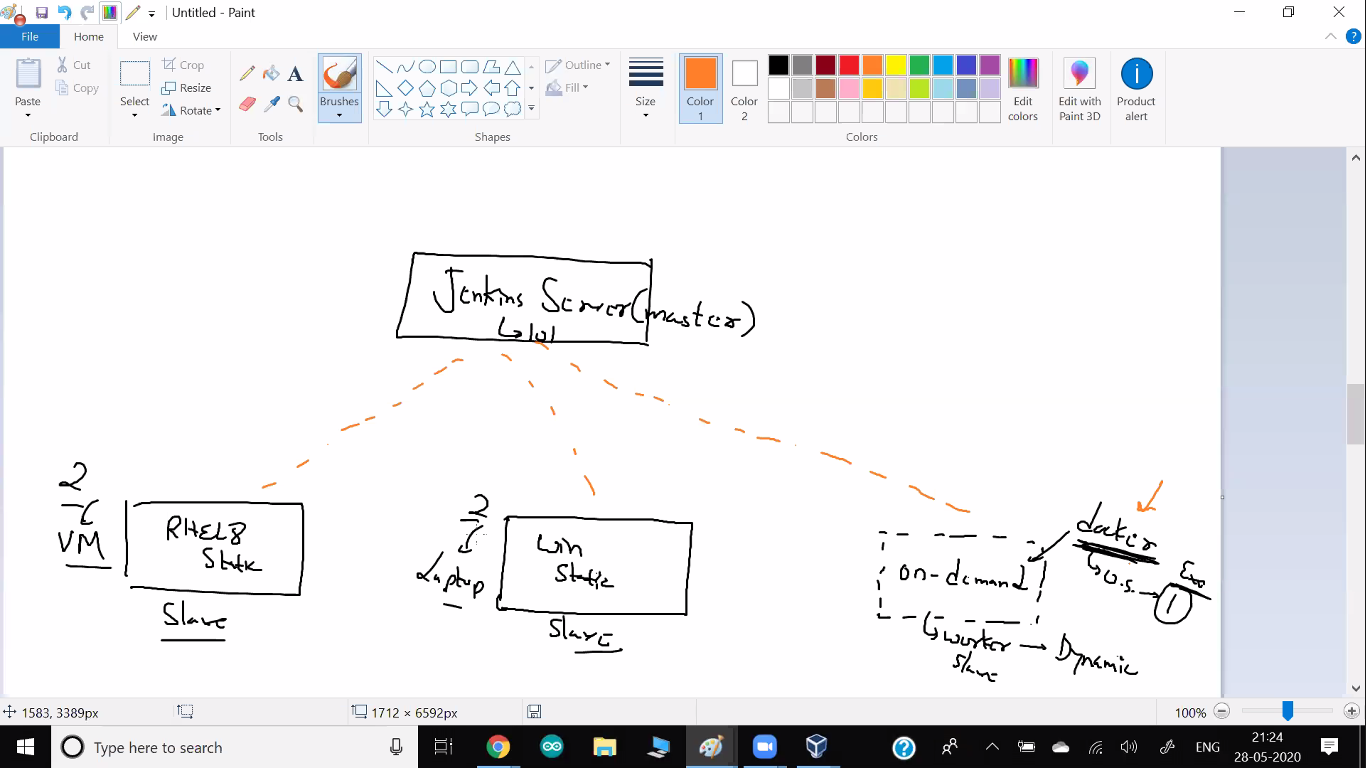 Untitled - Paint
File
Home
View
Paste
Cut
Copy
Clipboard
Select
Crop
Resize
Rotate
Image
A
Tools
Brushes
Shapes
Outline
Fill
Size
Color 1
Color 2
Edit colors
Colors
Edit with Paint 3D
Product alert
Jenkins Server(master)
101
2
VM
RHEL8
Static
Slave
2
Laptop
Win
Static
Slave
on-demand
docker
O.S.
1
worker
slave
Dynamic
1583, 3389px
1712 × 6592px
100%
Type here to search
ENG
21:24
28-05-2020